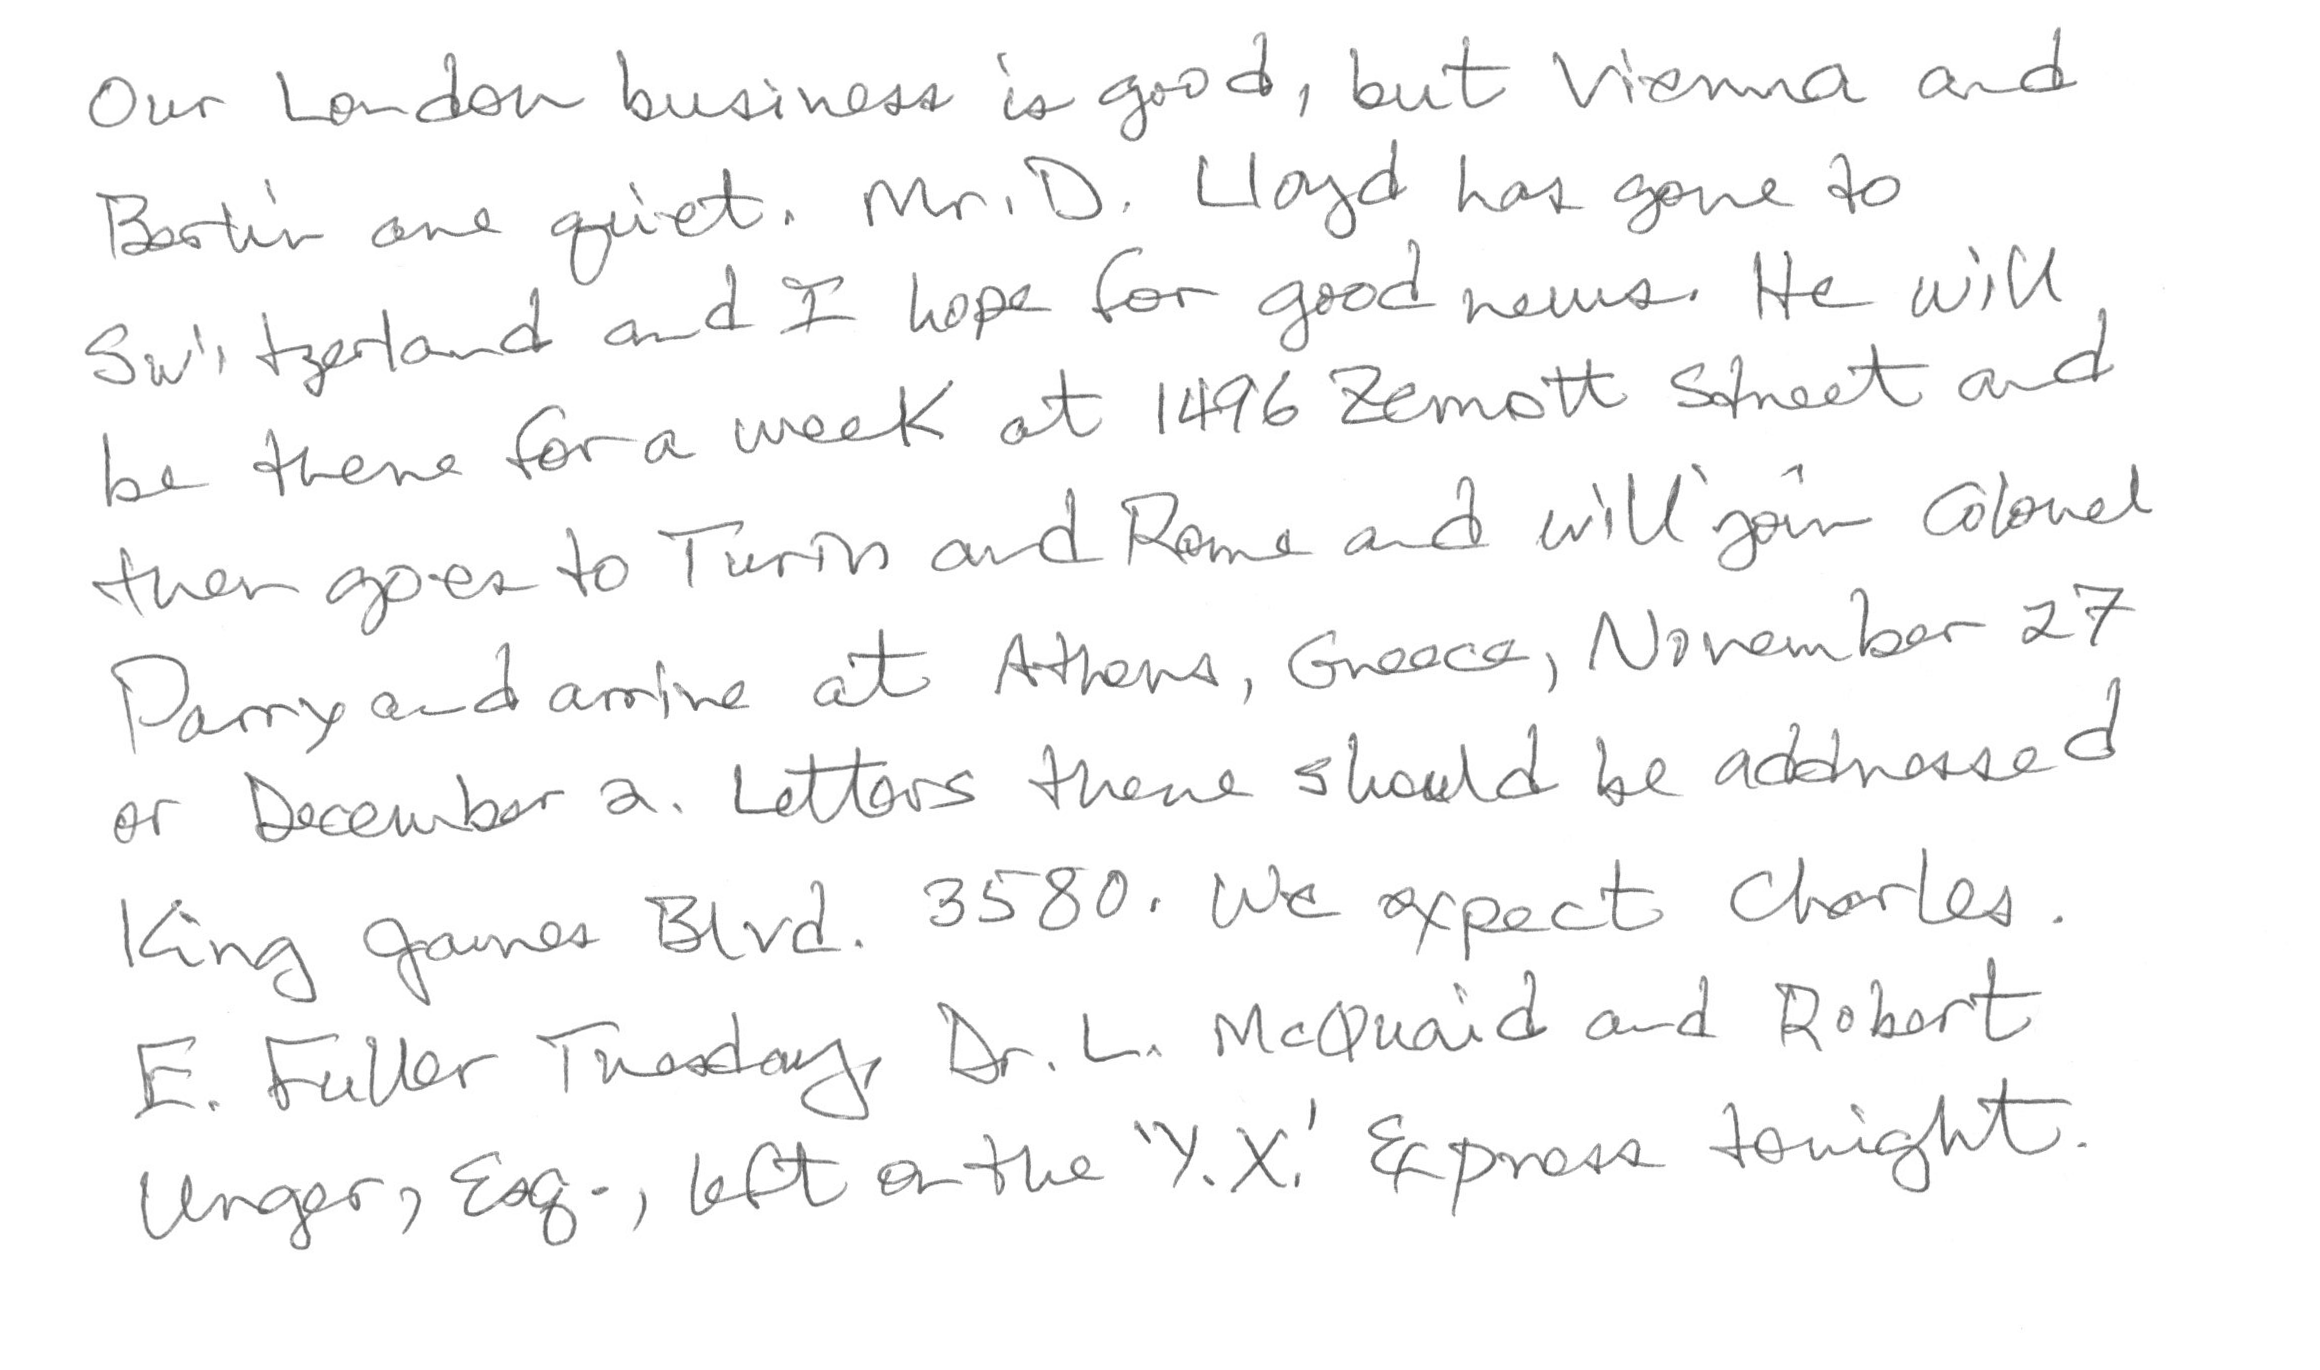 Our London business is good, but Vienna and
Berlin are quiet. Mr. D. Lloyd has gone to
Switzerland and I hope for good news. He will
be there for a week at 1496 Zemott Street and
then goes to Turin and Rome and will join Colonel
Parry and arrive at Athens, Greece, November 27
or December 2. Letters there should be addressed
King James Blvd. 3580. We expect Charles.
E. Fuller Tuesday, Dr. L. McQuaid and Robert
Unger, Esq., left on the 'Y.X.' Express tonight.